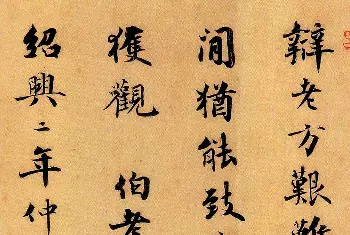 辯老方艱難
間猶能致
獲觀 伯
紹興二年仲